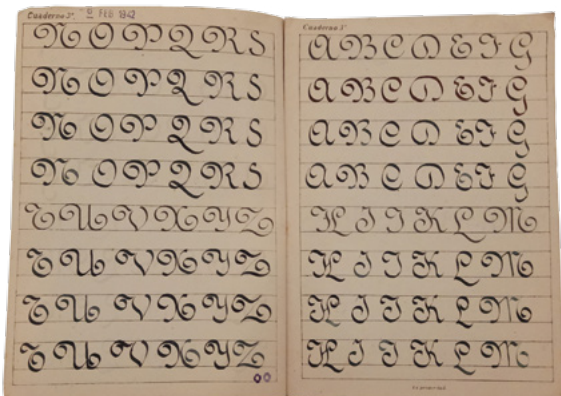 Cuaderno 3º. FEB 1942
N O P Q R S
N O P Q R S
N O P Q R S
N O P Q R S
T U V X Y Z
T U V X Y Z
T U V X Y Z
T U V X Y Z
Cuaderno 3º
A B C D E F G
A B C D E F G
A B C D E F G
A B C D E F G
H I J K L M
H I J K L M
H I J K L M
H I J K L M
Es propiedad